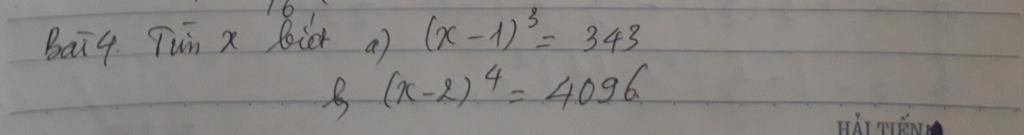 16
Bài 4. Tìm x biết a) (x-1)³ = 343
b, (x-2)⁴ = 4096
HẢI TIẾN